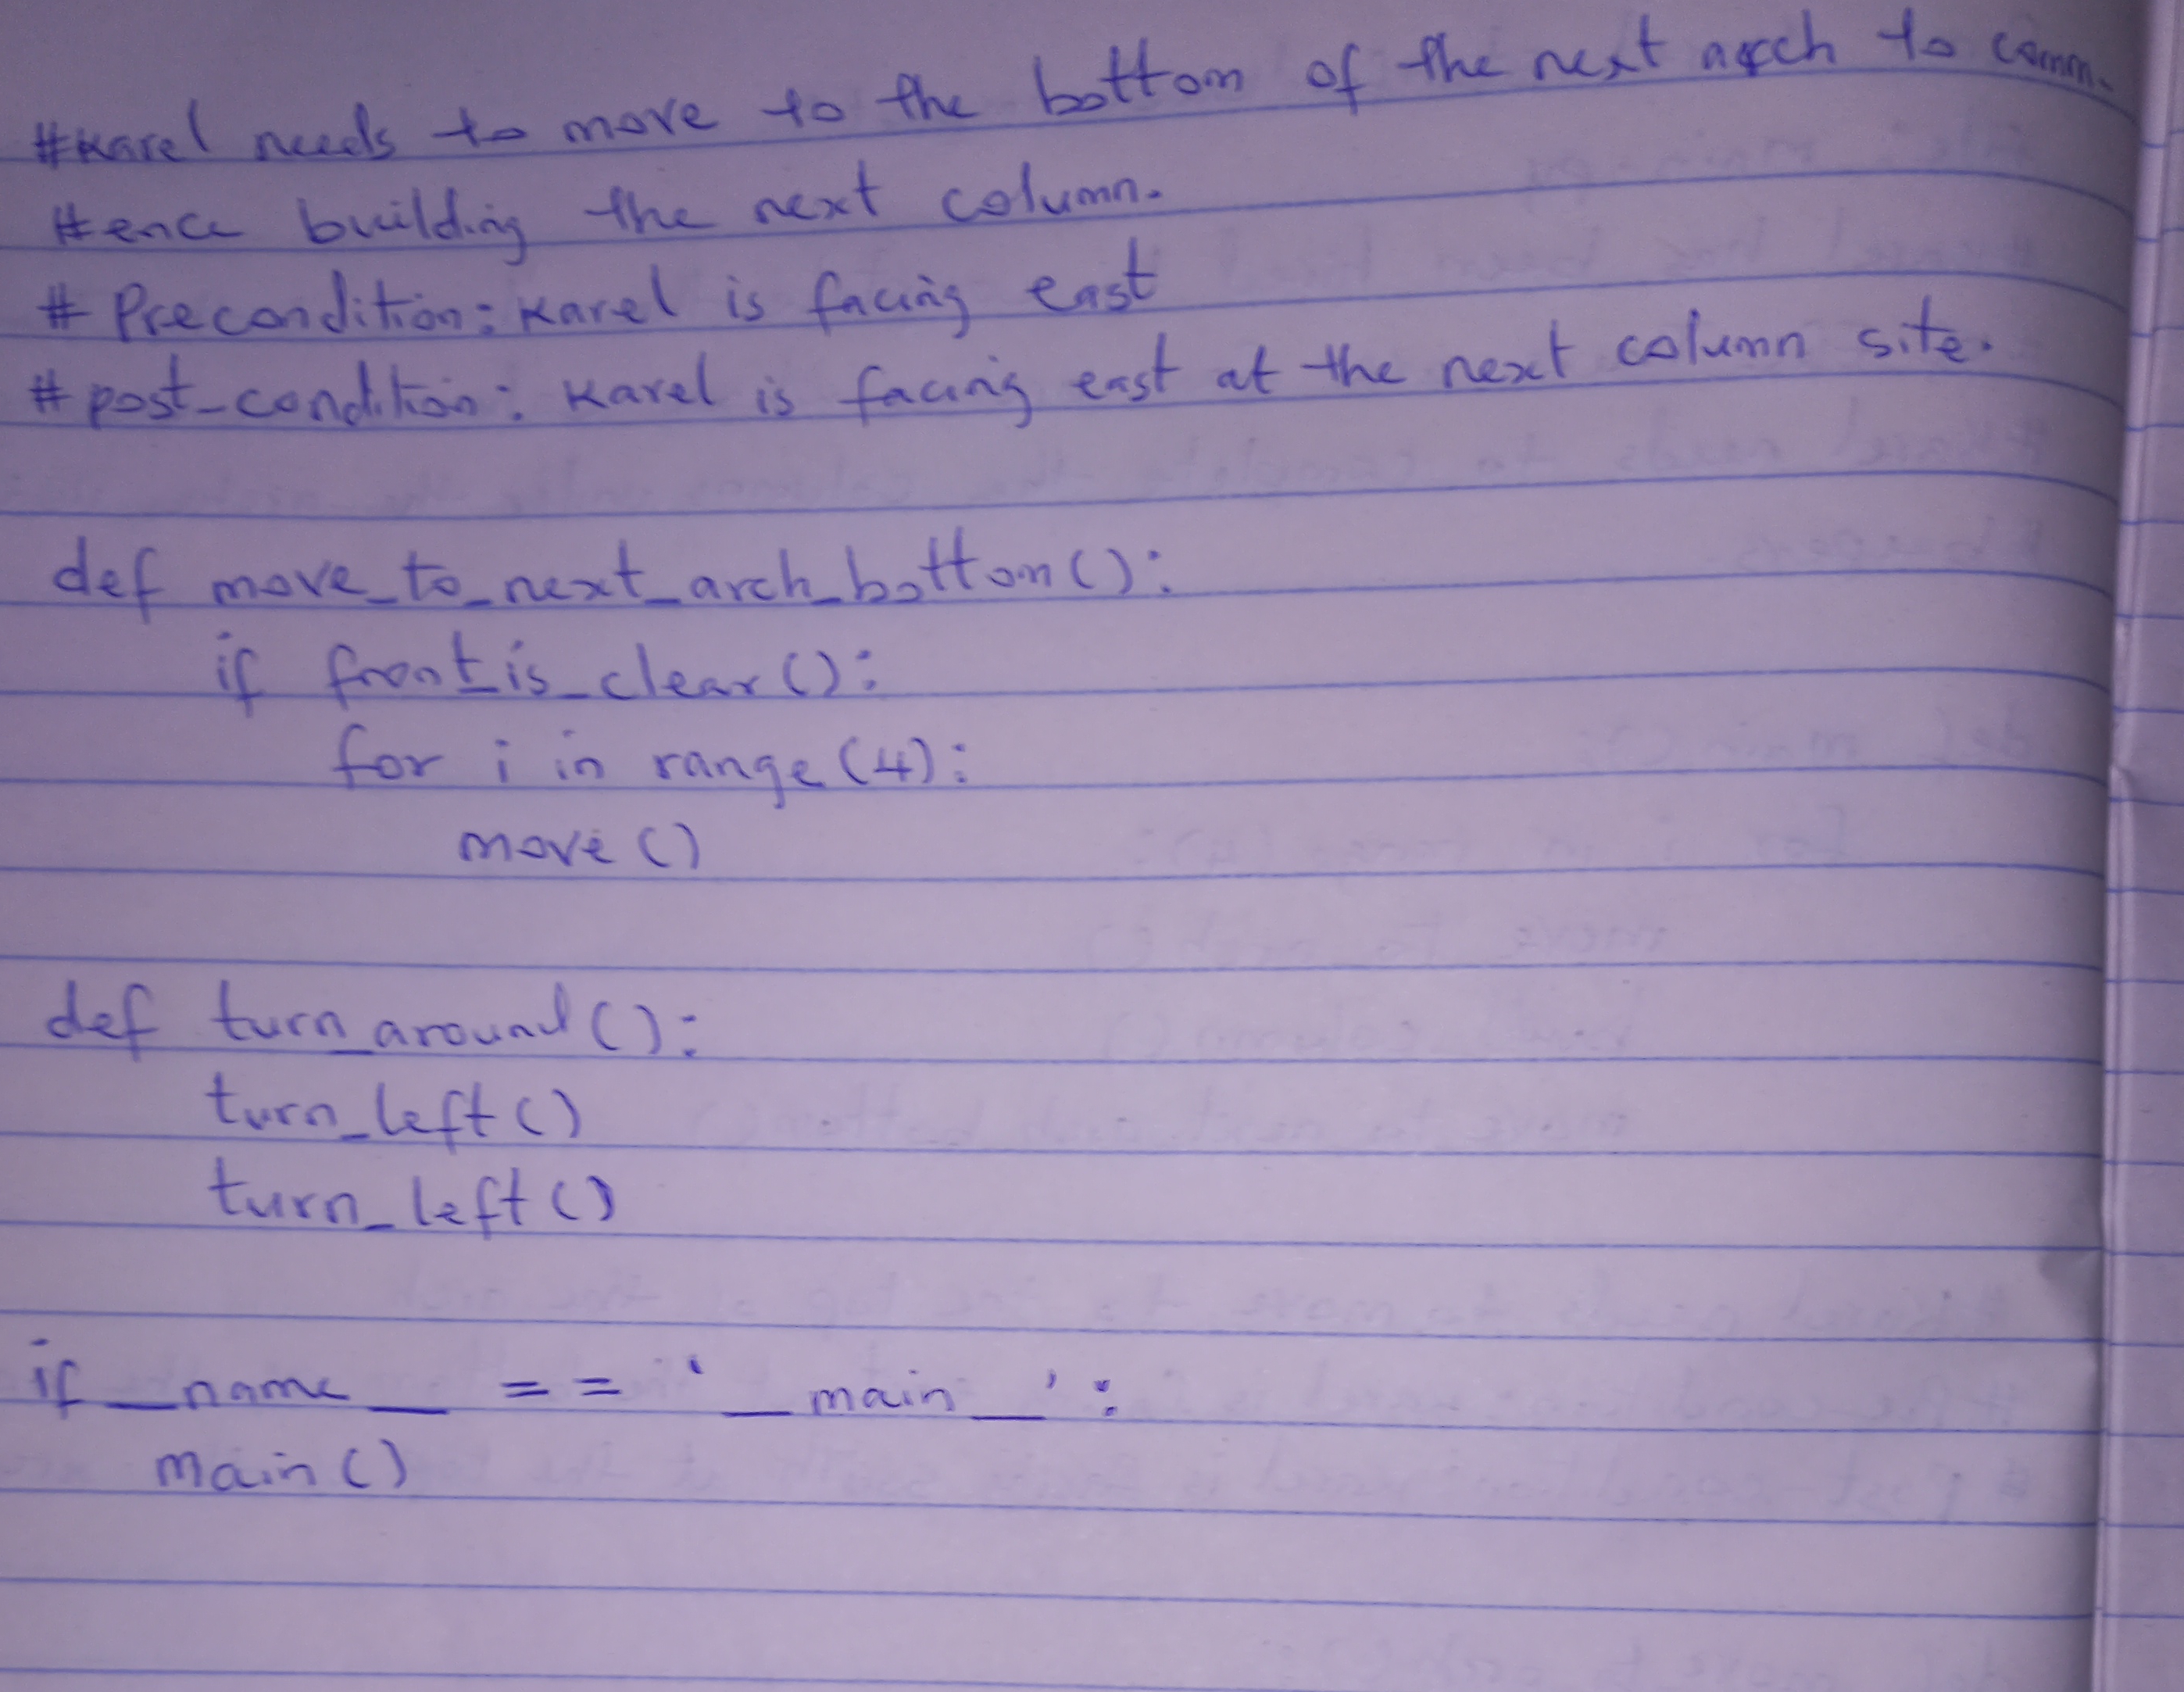 #Karel needs to move to the bottom of the next arch to comm-
#ence building the next column.
# Precondition: Karel is facing east
# post_condition: Karel is facing east at the next column site.
def move_to_next_arch_bottom():
if front_is_clear():
for i in range(4):
move()
def turn_around():
turn_left()
turn_left()
if _name_ == '_main_':
main()